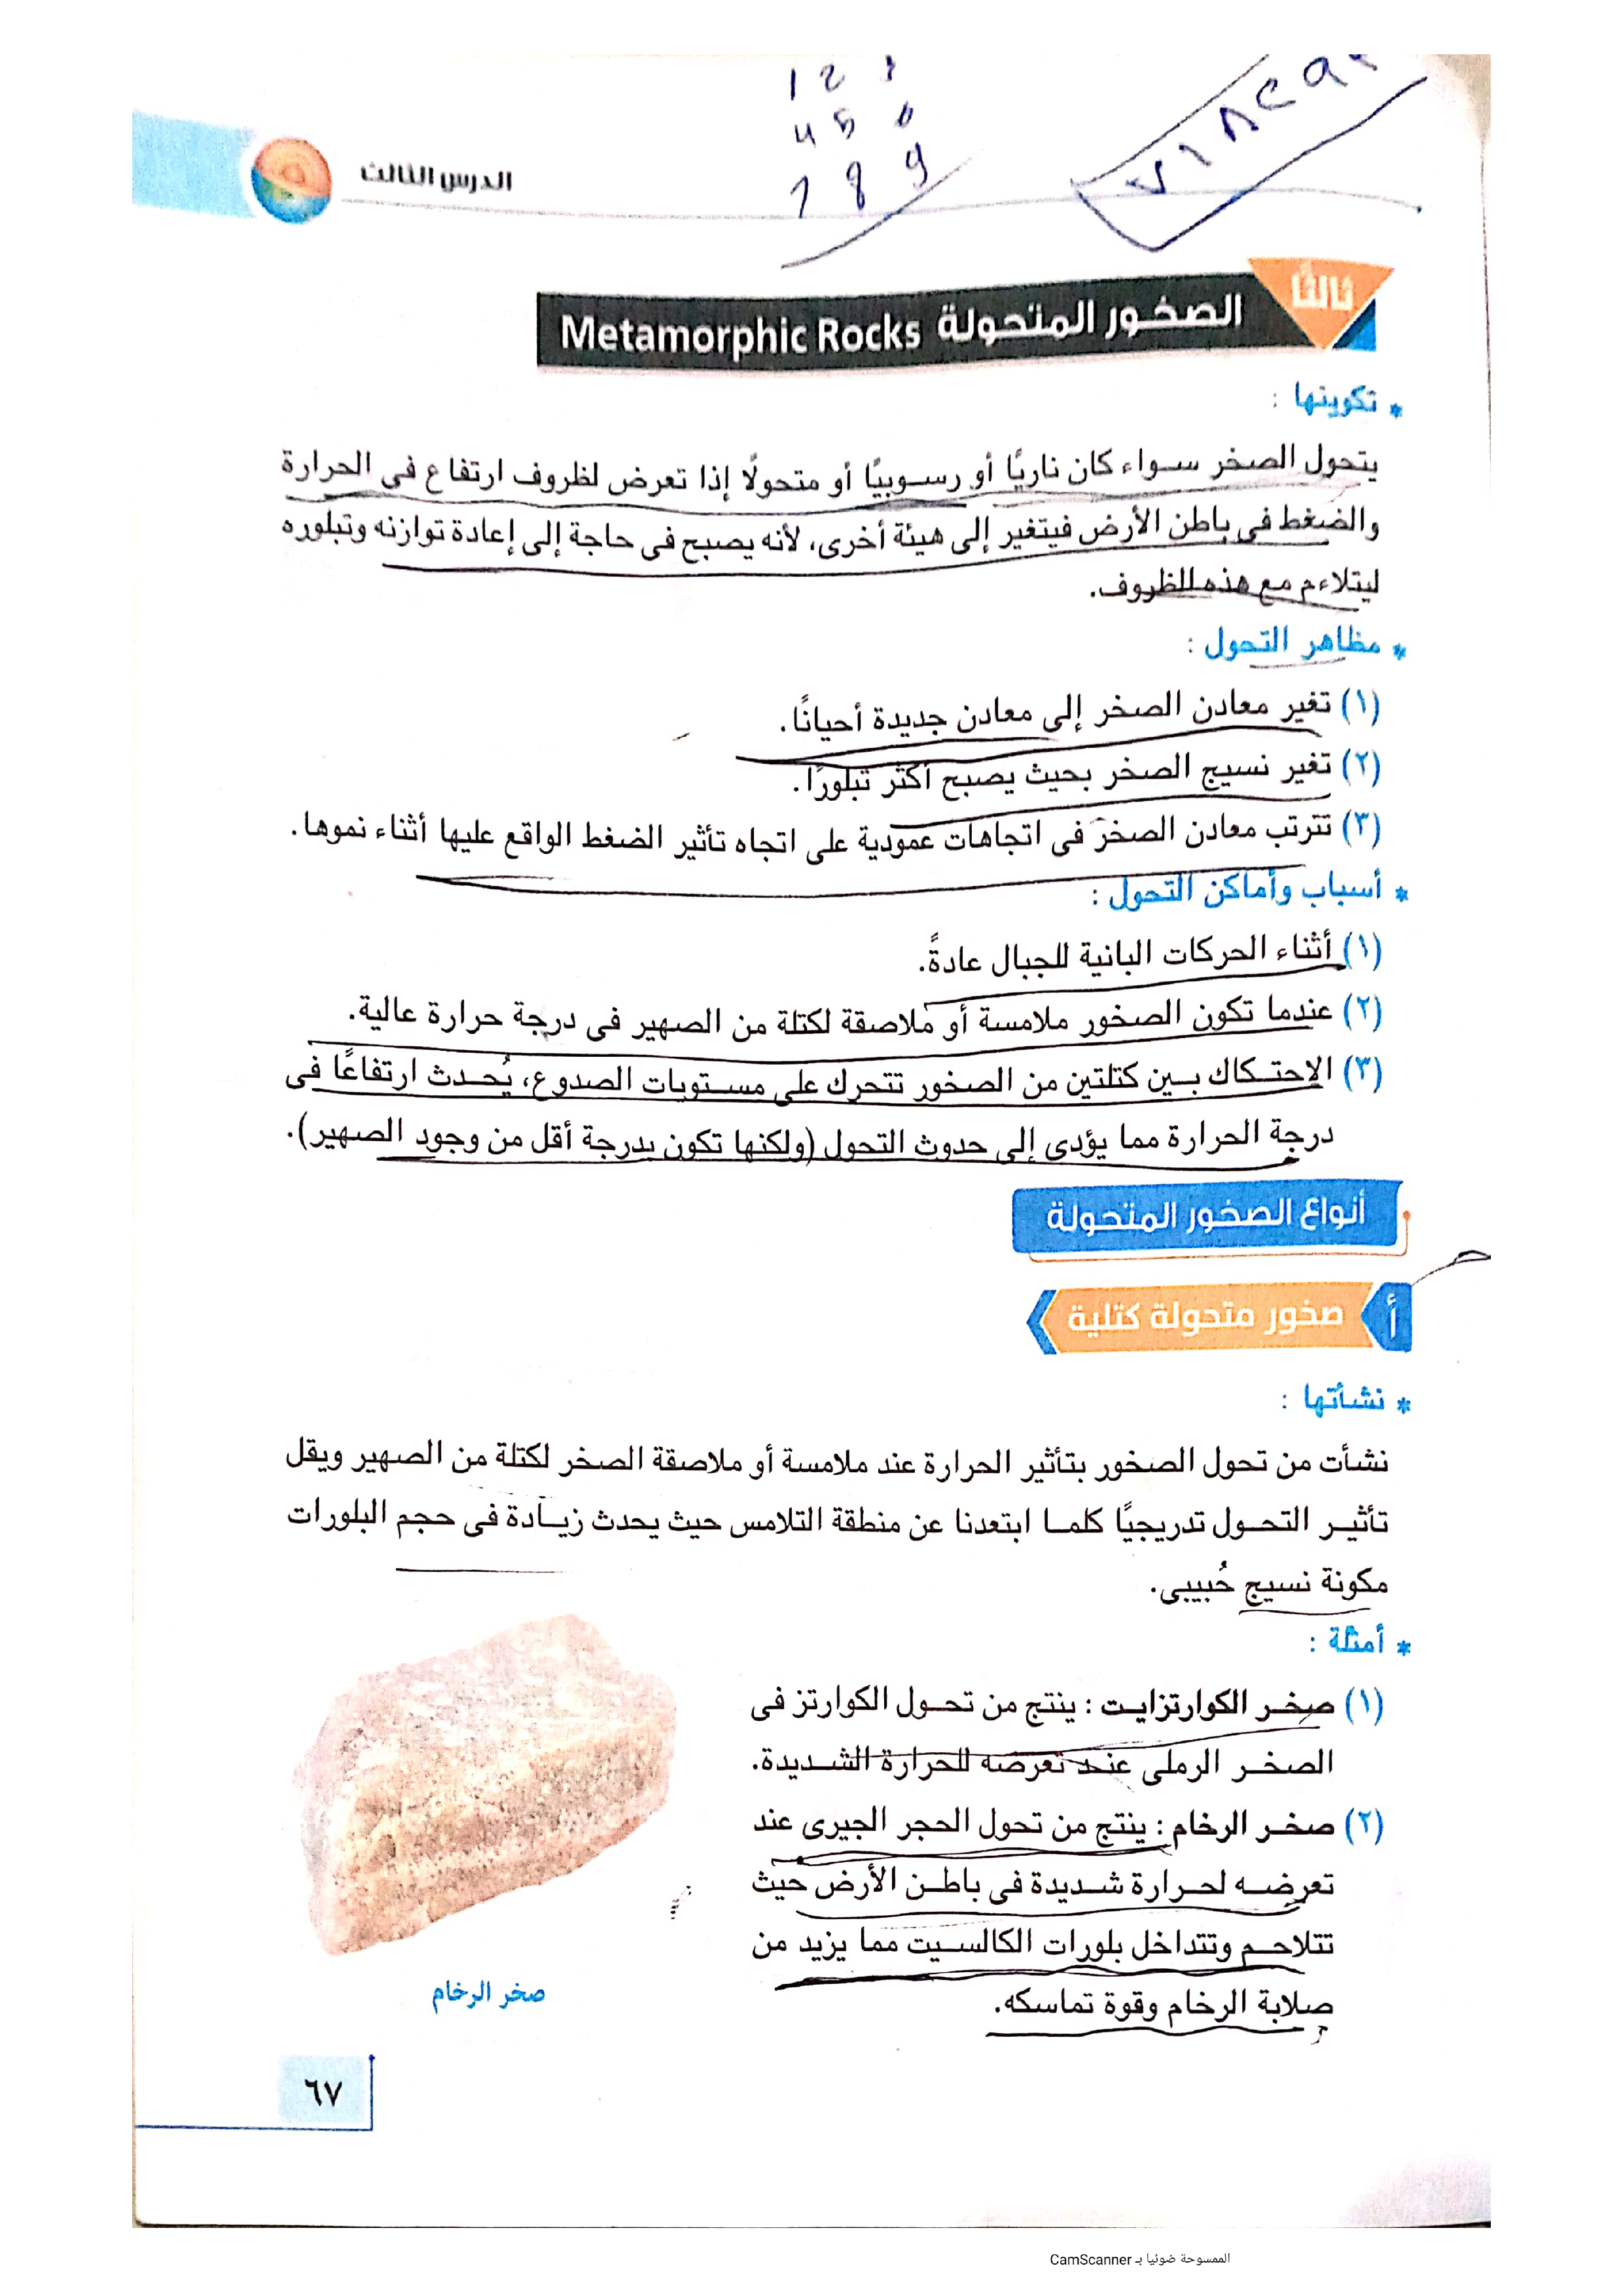 1 2 3
4 5 6
7 8 9
الدرس الثالث
ثالثًا
الصخور المتحولة Metamorphic Rocks
* تكوينها :
يتحول الصخر سواء كان ناريًا أو رسوبيًا أو متحولًا إذا تعرض لظروف ارتفاع فى الحرارة
والضغط فى باطن الأرض فيتغير إلى هيئة أخرى، لأنه يصبح فى حاجة إلى إعادة توازنه وتبلوره
ليتلاءم مع هذه الظروف.
* مظاهر التحول :
(١) تغير معادن الصخر إلى معادن جديدة أحيانًا.
(٢) تغير نسيج الصخر بحيث يصبح أكثر تبلورًا.
(٣) تترتب معادن الصخر فى اتجاهات عمودية على اتجاه تأثير الضغط الواقع عليها أثناء نموها.
* أسباب وأماكن التحول :
(١) أثناء الحركات البانية للجبال عادةً.
(٢) عندما تكون الصخور ملامسة أو ملاصقة لكتلة من الصهير فى درجة حرارة عالية.
(٣) الاحتكاك بين كتلتين من الصخور تتحرك على مستويات الصدوع، يُحدث ارتفاعًا فى
درجة الحرارة مما يؤدى إلى حدوث التحول (ولكنها تكون بدرجة أقل من وجود الصهير).
أنواع الصخور المتحولة
أ صخور متحولة كتلية
* نشأتها :
نشأت من تحول الصخور بتأثير الحرارة عند ملامسة أو ملاصقة الصخر لكتلة من الصهير ويقل
تأثير التحول تدريجيًا كلما ابتعدنا عن منطقة التلامس حيث يحدث زيادة فى حجم البلورات
مكونة نسيج حُبيبى.
* أمثلة :
(١) صخر الكوارتزايت : ينتج من تحول الكوارتز فى
الصخر الرملى عند تعرضه للحرارة الشديدة.
(٢) صخر الرخام : ينتج من تحول الحجر الجيرى عند
تعرضه لحرارة شديدة فى باطن الأرض حيث
تتلاحم وتتداخل بلورات الكالسيت مما يزيد من
صلابة الرخام وقوة تماسكه.
صخر الرخام
٦٧
الممسوحة ضوئيا بـ CamScanner